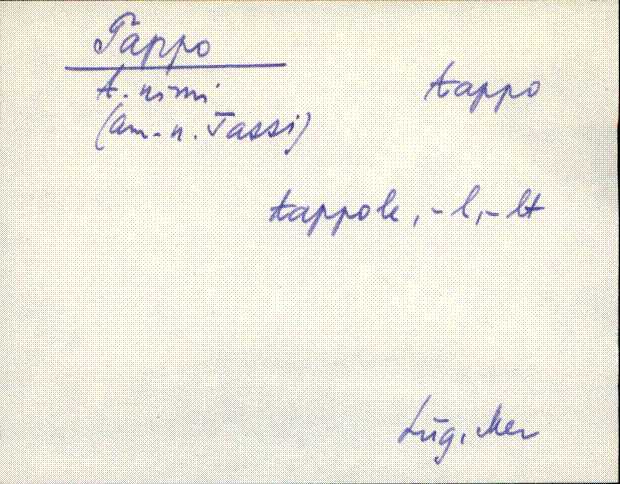 Tappo
t. nimi
(am.-n. Tassi)
tappo
tappole, -l, -lt
Lüg, Mer